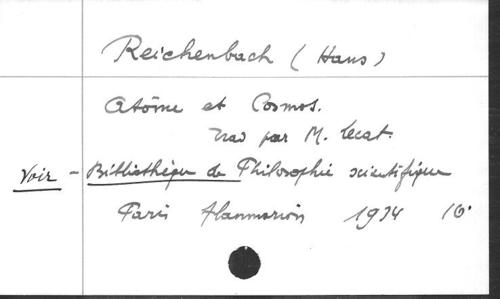 Reichenbach (Hans)
Atome et Cosmos.
Trad par M. Lecat.
Voir - Bibliothèque de Philosophie scientifique
Paris Flammarion 1934 16°